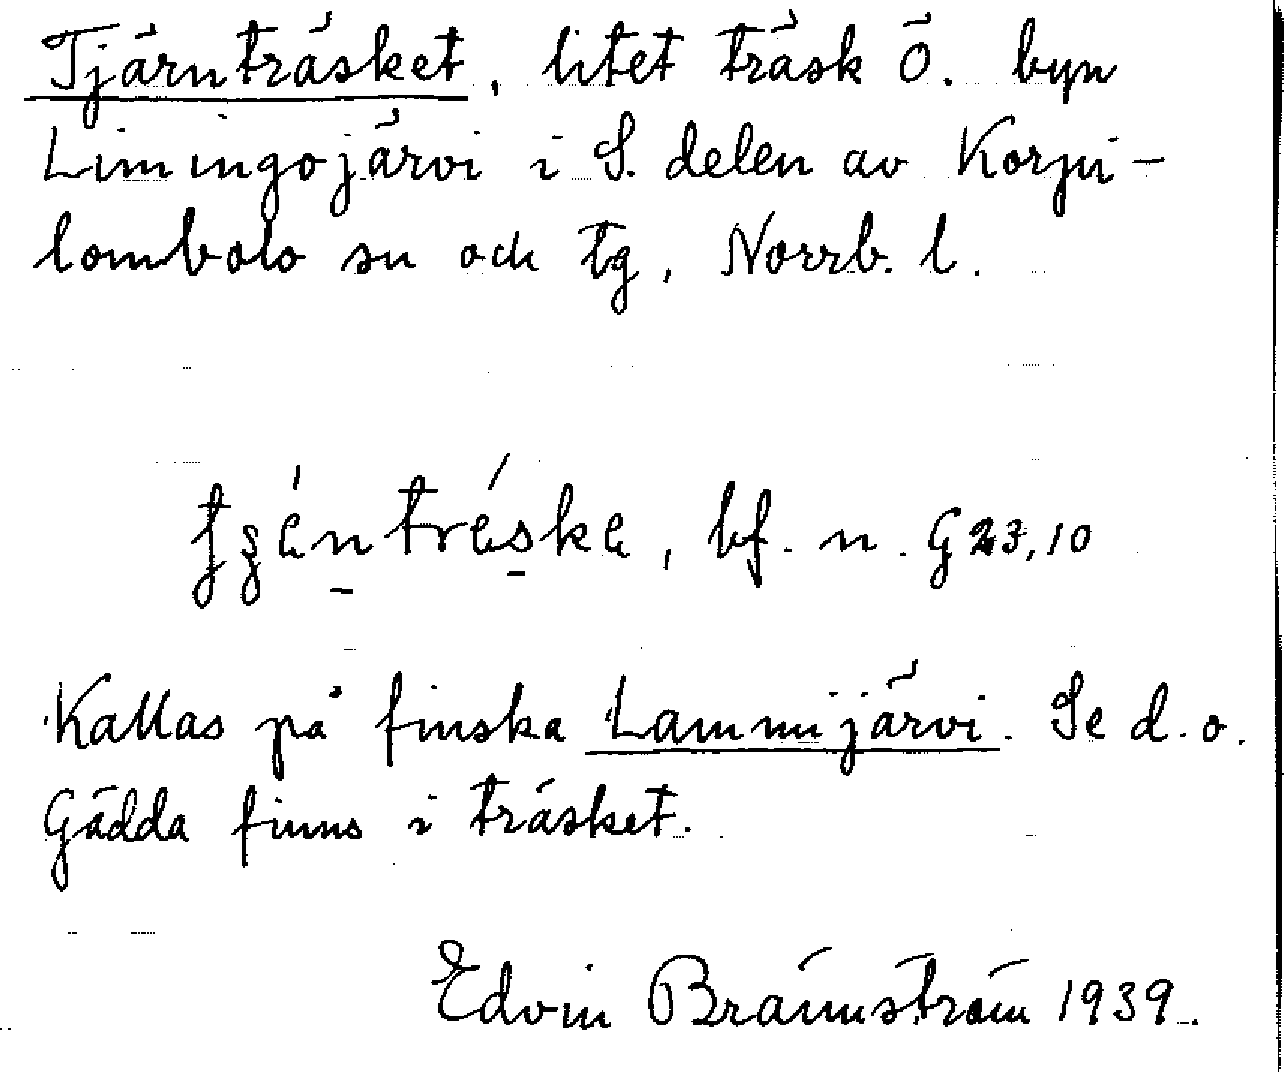 Tjärnträsket, litet träsk Ö. byn
Limingojärvi i S. delen av Korpi-
lombolo sn och tg, Norrb. l.
bf. n. G 23,10
Kallas på finska Lammijärvi. Se d. o.
Gädda finns i träsket.
Edvin Brännström 1939.